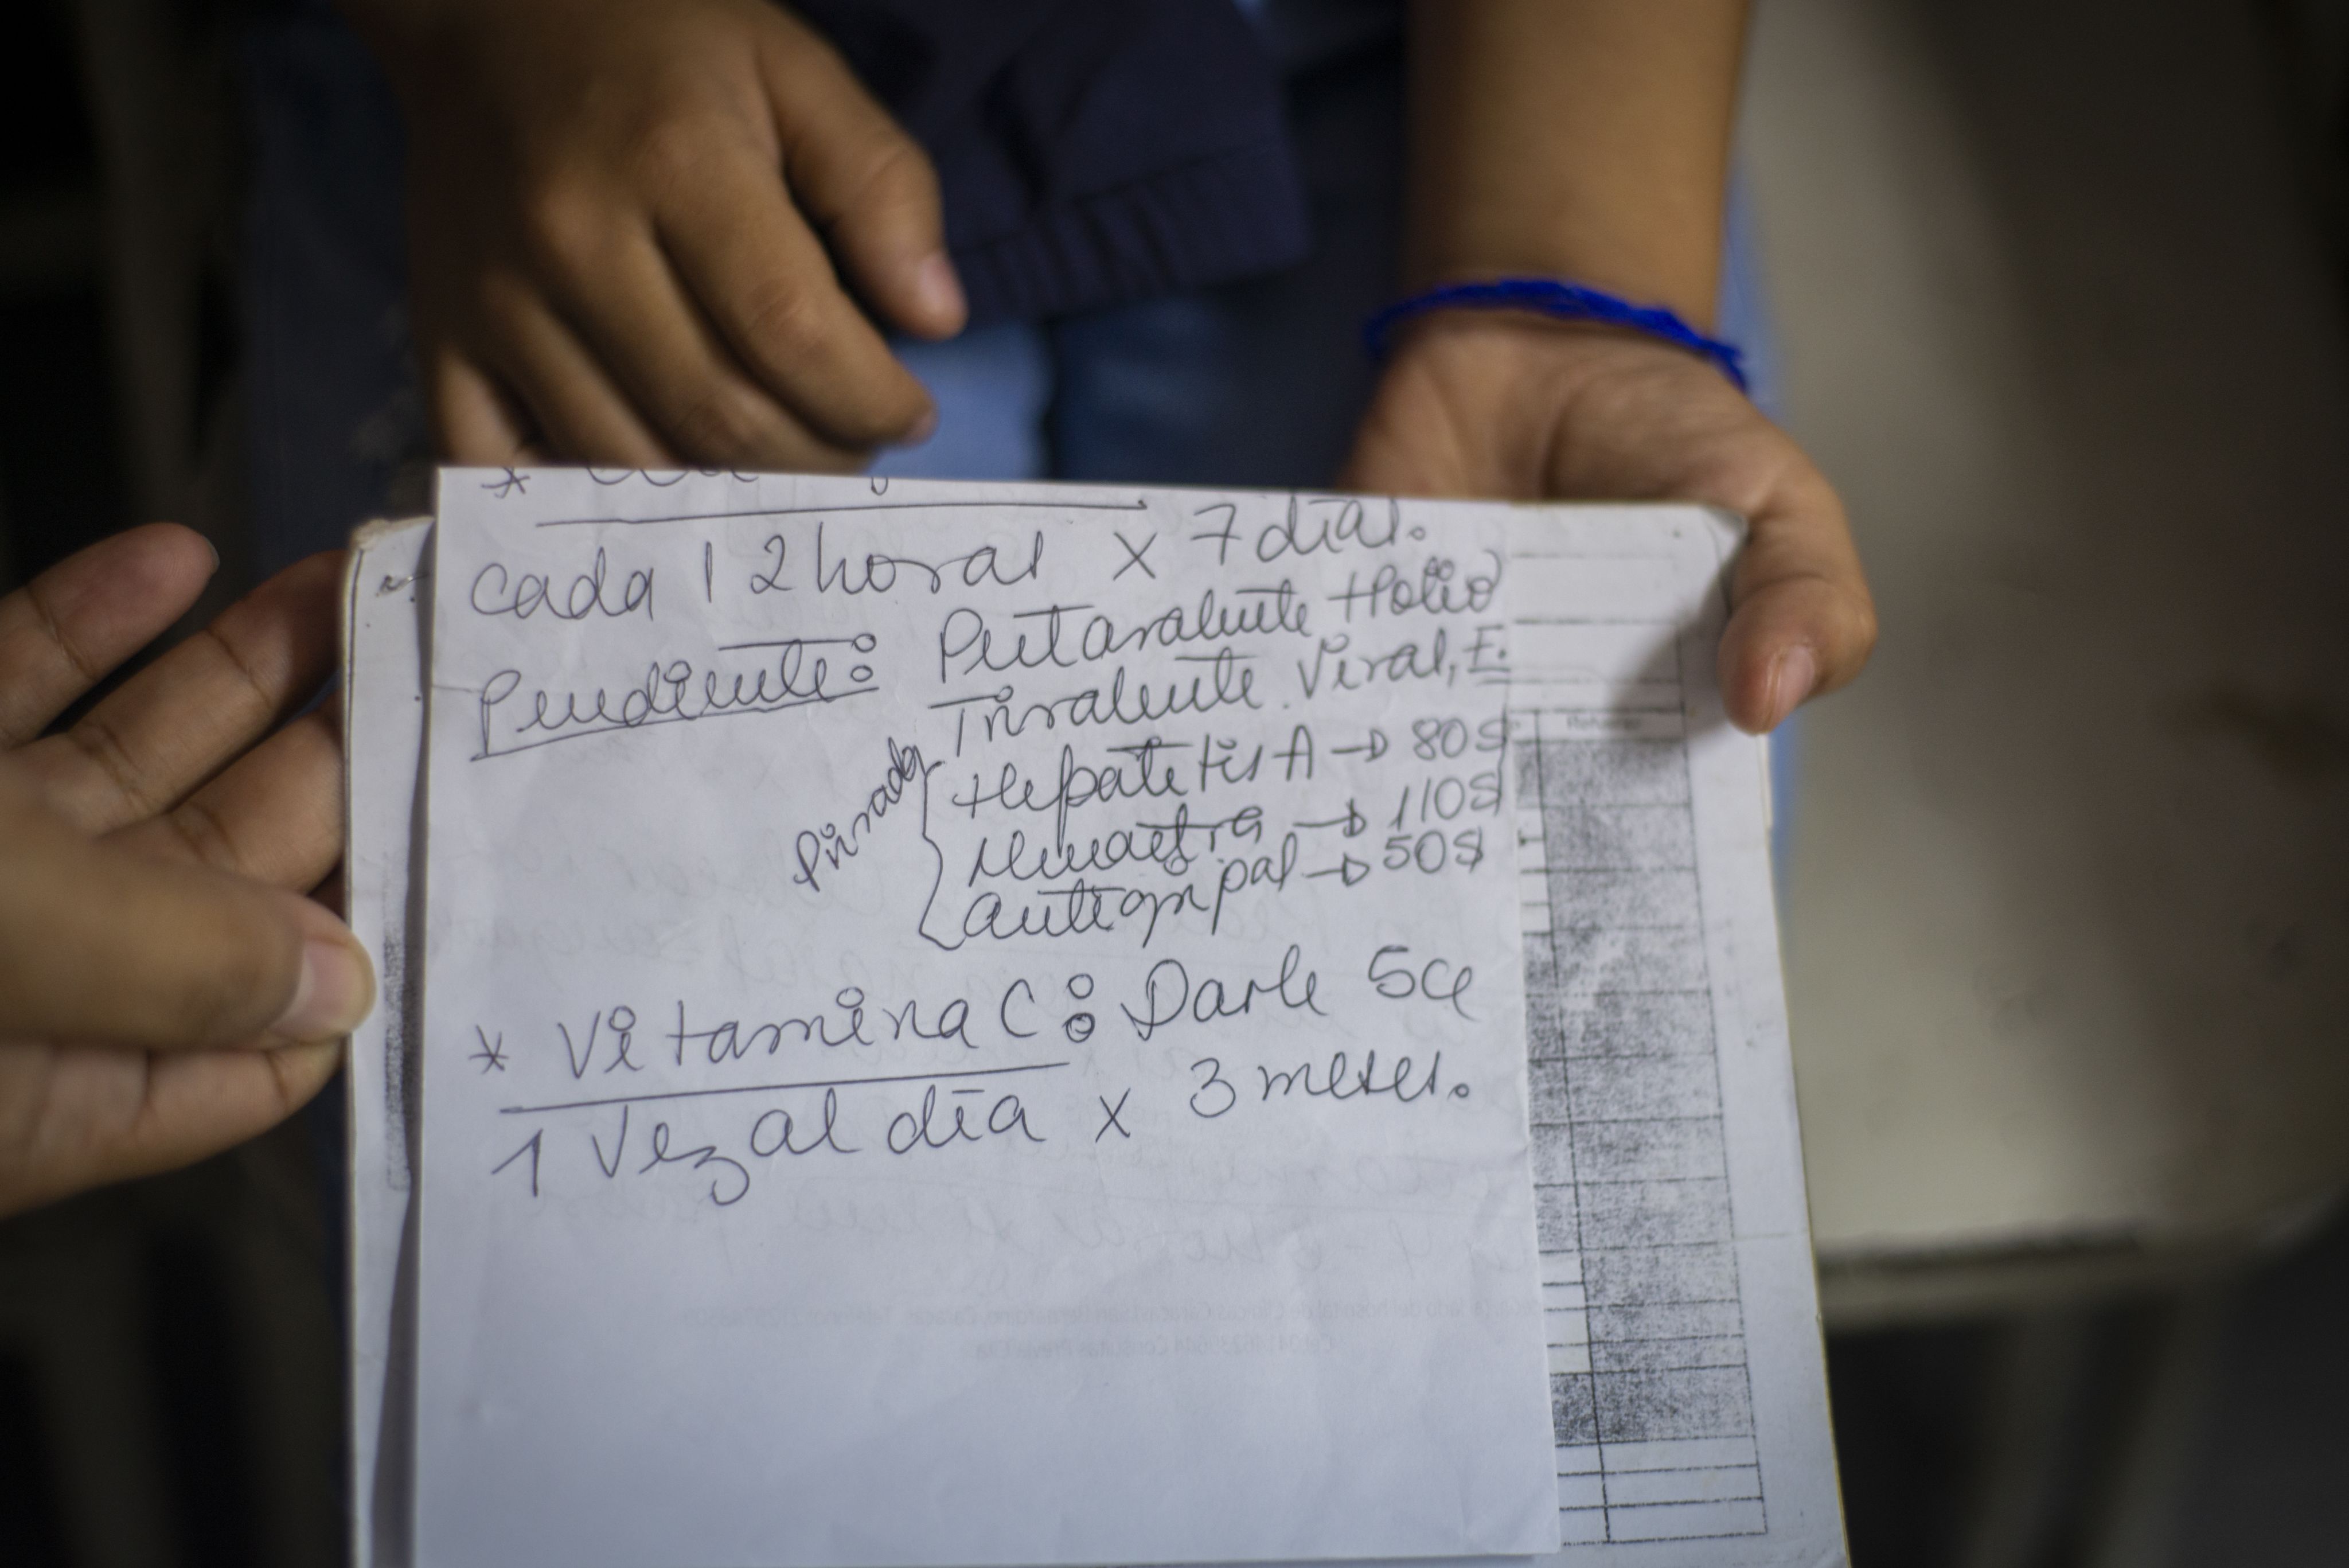 cada 12 horas x 7 días.
Pendiente: Pentavalente + Polio
Trivalente Viral, F.
Privado
Hepatitis A → 80$
Menactra → 110$
antigripal → 50$
* Vitamina C: Darle 5cc
1 Vez al día x 3 meses.